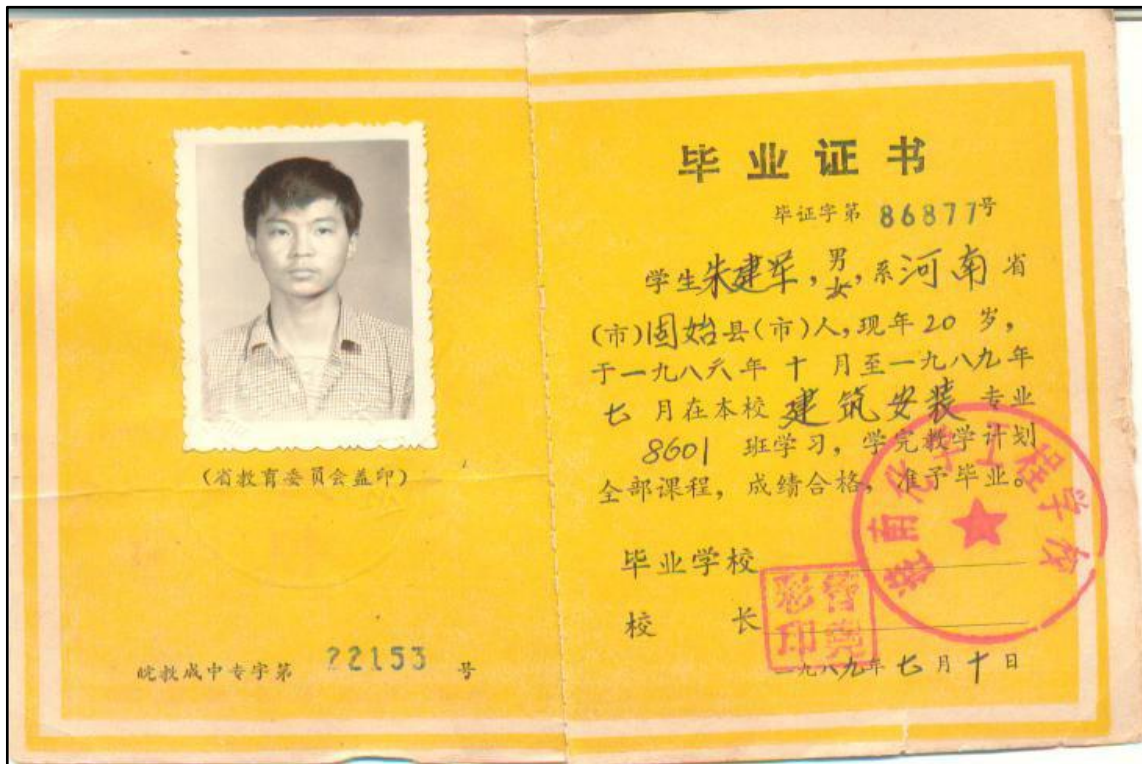 (省教育委员会盖印)
皖教成中专字第 22153 号
毕业证书
毕证字第 86877号
学生朱建军,男女,系河南省
(市)固始县(市)人,现年20岁,
于一九八六年十月至一九八九年
七月在本校建筑安装专业
8601 班学习,学完教学计划
全部课程,成绩合格,准予毕业。
毕业学校
淮南化学工程学校
校 长
印
一九八九年七月十日